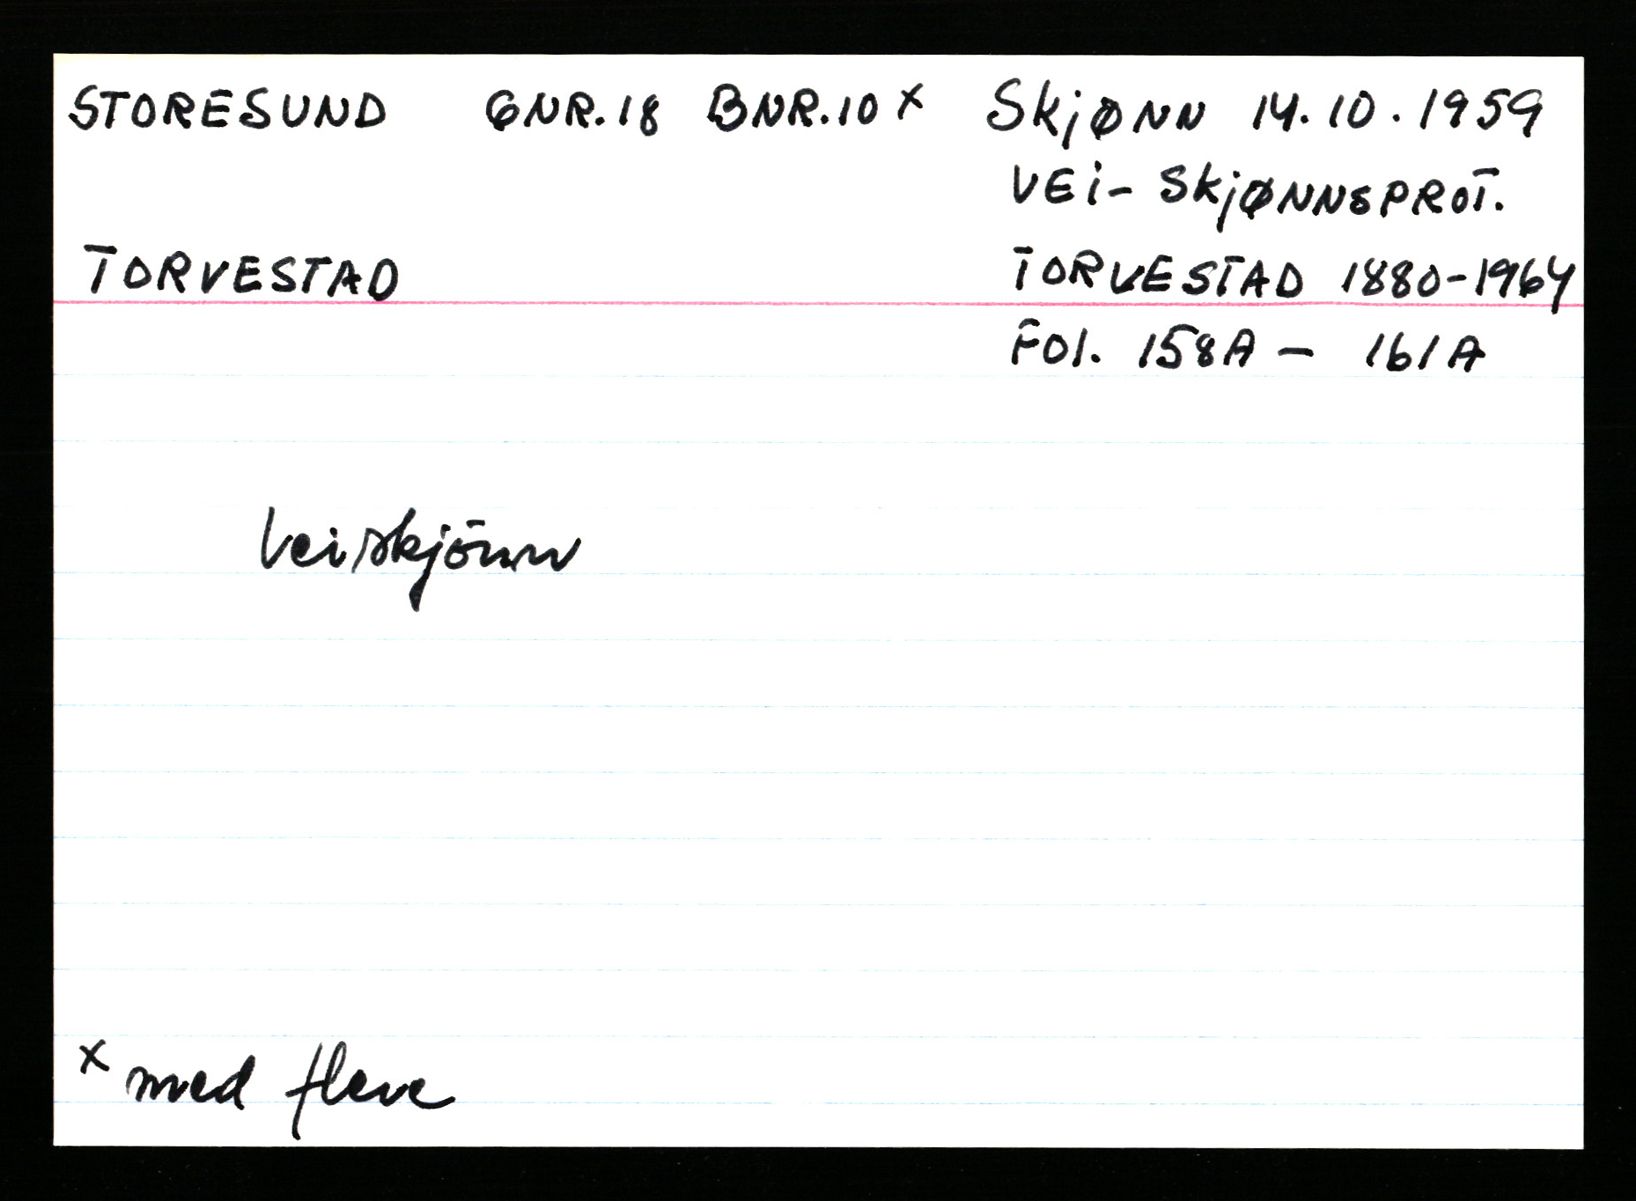 STORESUND GNR.18 BNR.10 x Skjønn 14.10.1959
VEi- SkjØNNSPROT.
TORVESTAD TORVESTAD 1880-1964
Fol. 158A - 161A
Veiskjönn
x med flere